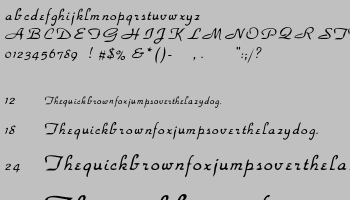 abcdefghijklmnopqrstuvwxyz
ABCDEFGHIJKLMNOPQRST
0123456789 !#$% &*()- , . ":;/?
12 Thequickbrownfoxjumpsoverthelazydog.
18 Thequickbrownfoxjumpsoverthelazydog.
24 Thequickbrownfoxjumpsoverthela